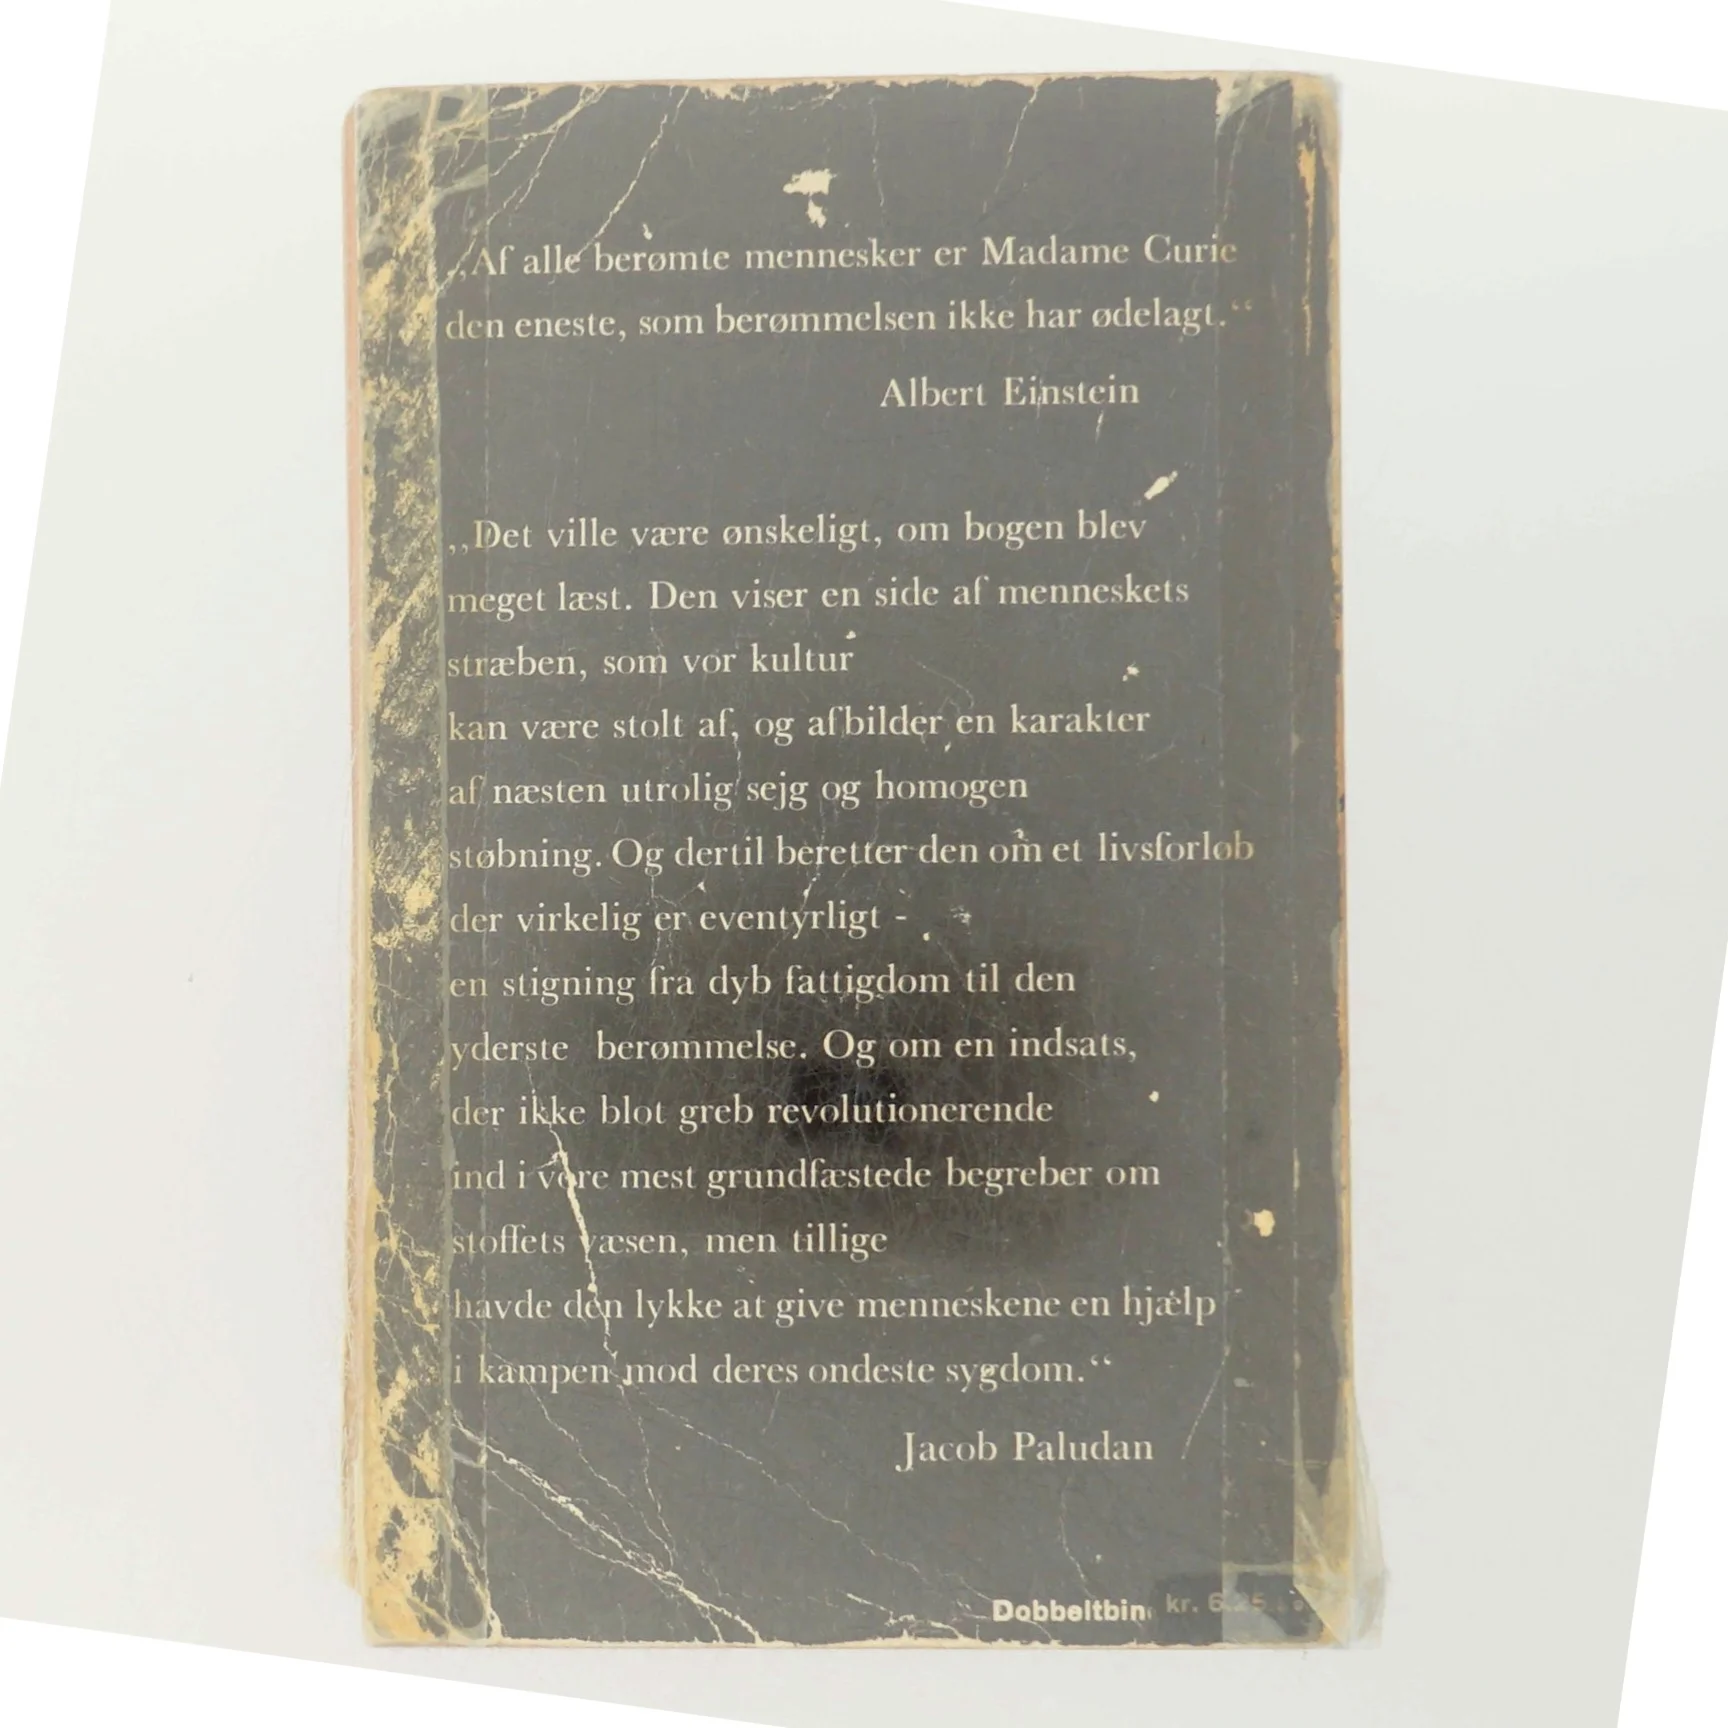 „Af alle berømte mennesker er Madame Curie
den eneste, som berømmelsen ikke har ødelagt.“
Albert Einstein
„Det ville være ønskeligt, om bogen blev
meget læst. Den viser en side af menneskets
stræben, som vor kultur
kan være stolt af, og afbilder en karakter
af næsten utrolig sejg og homogen
støbning. Og dertil beretter den om et livsforløb
der virkelig er eventyrligt -
en stigning fra dyb fattigdom til den
yderste berømmelse. Og om en indsats,
der ikke blot greb revolutionerende
ind i vore mest grundfæstede begreber om
stoffets væsen, men tillige
havde den lykke at give menneskene en hjælp
i kampen mod deres ondeste sygdom.“
Jacob Paludan
kr.